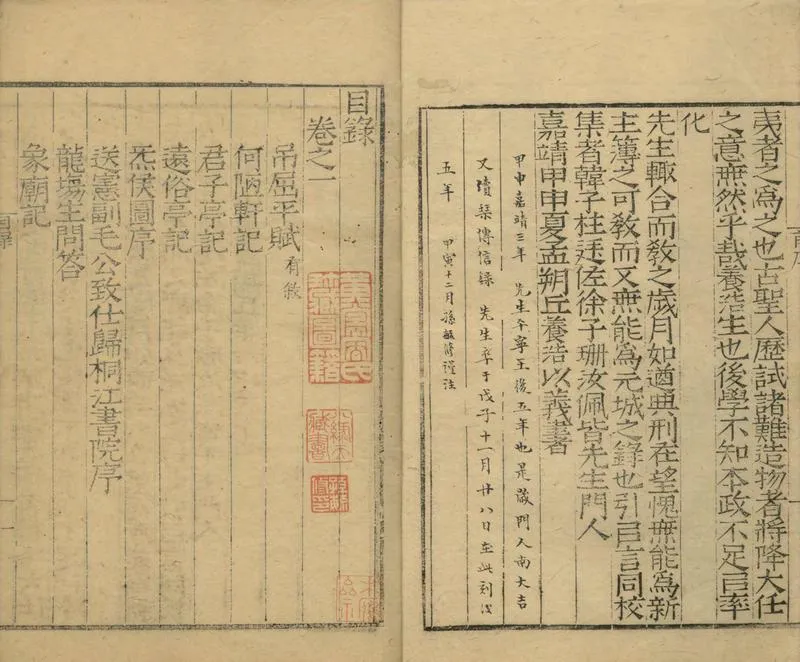 夷者之爲之也古聖人歷試諸難造物者將降大任
之意無然乎哉養浩生也後學不知本政不足㠯率
化
先生輙合而教之歲月如遒典刑在望愧無能爲新
主簿之可教而又無能爲元城之錄也引㠯言同校
集者韓子柱廷佐徐子珊汝佩皆先生門人
嘉靖甲申夏孟朔丘養浩以義書
甲申嘉靖三年 先生平寧王後五年也是歲門人南大吉
又續 傳信録 先生卒于戊子十一月廿八日在此刻後
五年 甲寅十二月孫毓修謹注
目錄
卷之一
弔屈平賦有敘
何陋軒記
君子亭記
遠俗亭記
炁候圖序
送憲副毛公致仕歸桐江書院序
龍塲生問答
象廟記
目錄
一
小綠天藏書
孫毓修印